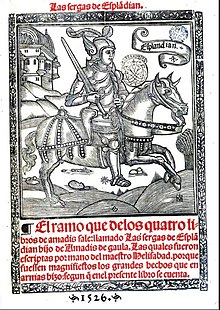 Las sergas de Esplãdian.
Esplandian.
¶ El ramo que delos quatro li
bros de amadis sale: llamado Las sergas de Esplã
dian hijo de Amadis de gaula. Las quales fueron
escriptas por mano del maestro Helisabad. porque
fuessen magnifiestos los grandes hechos que en
armas hizo. segun q̃ enl presente libro se cuenta.
1526.